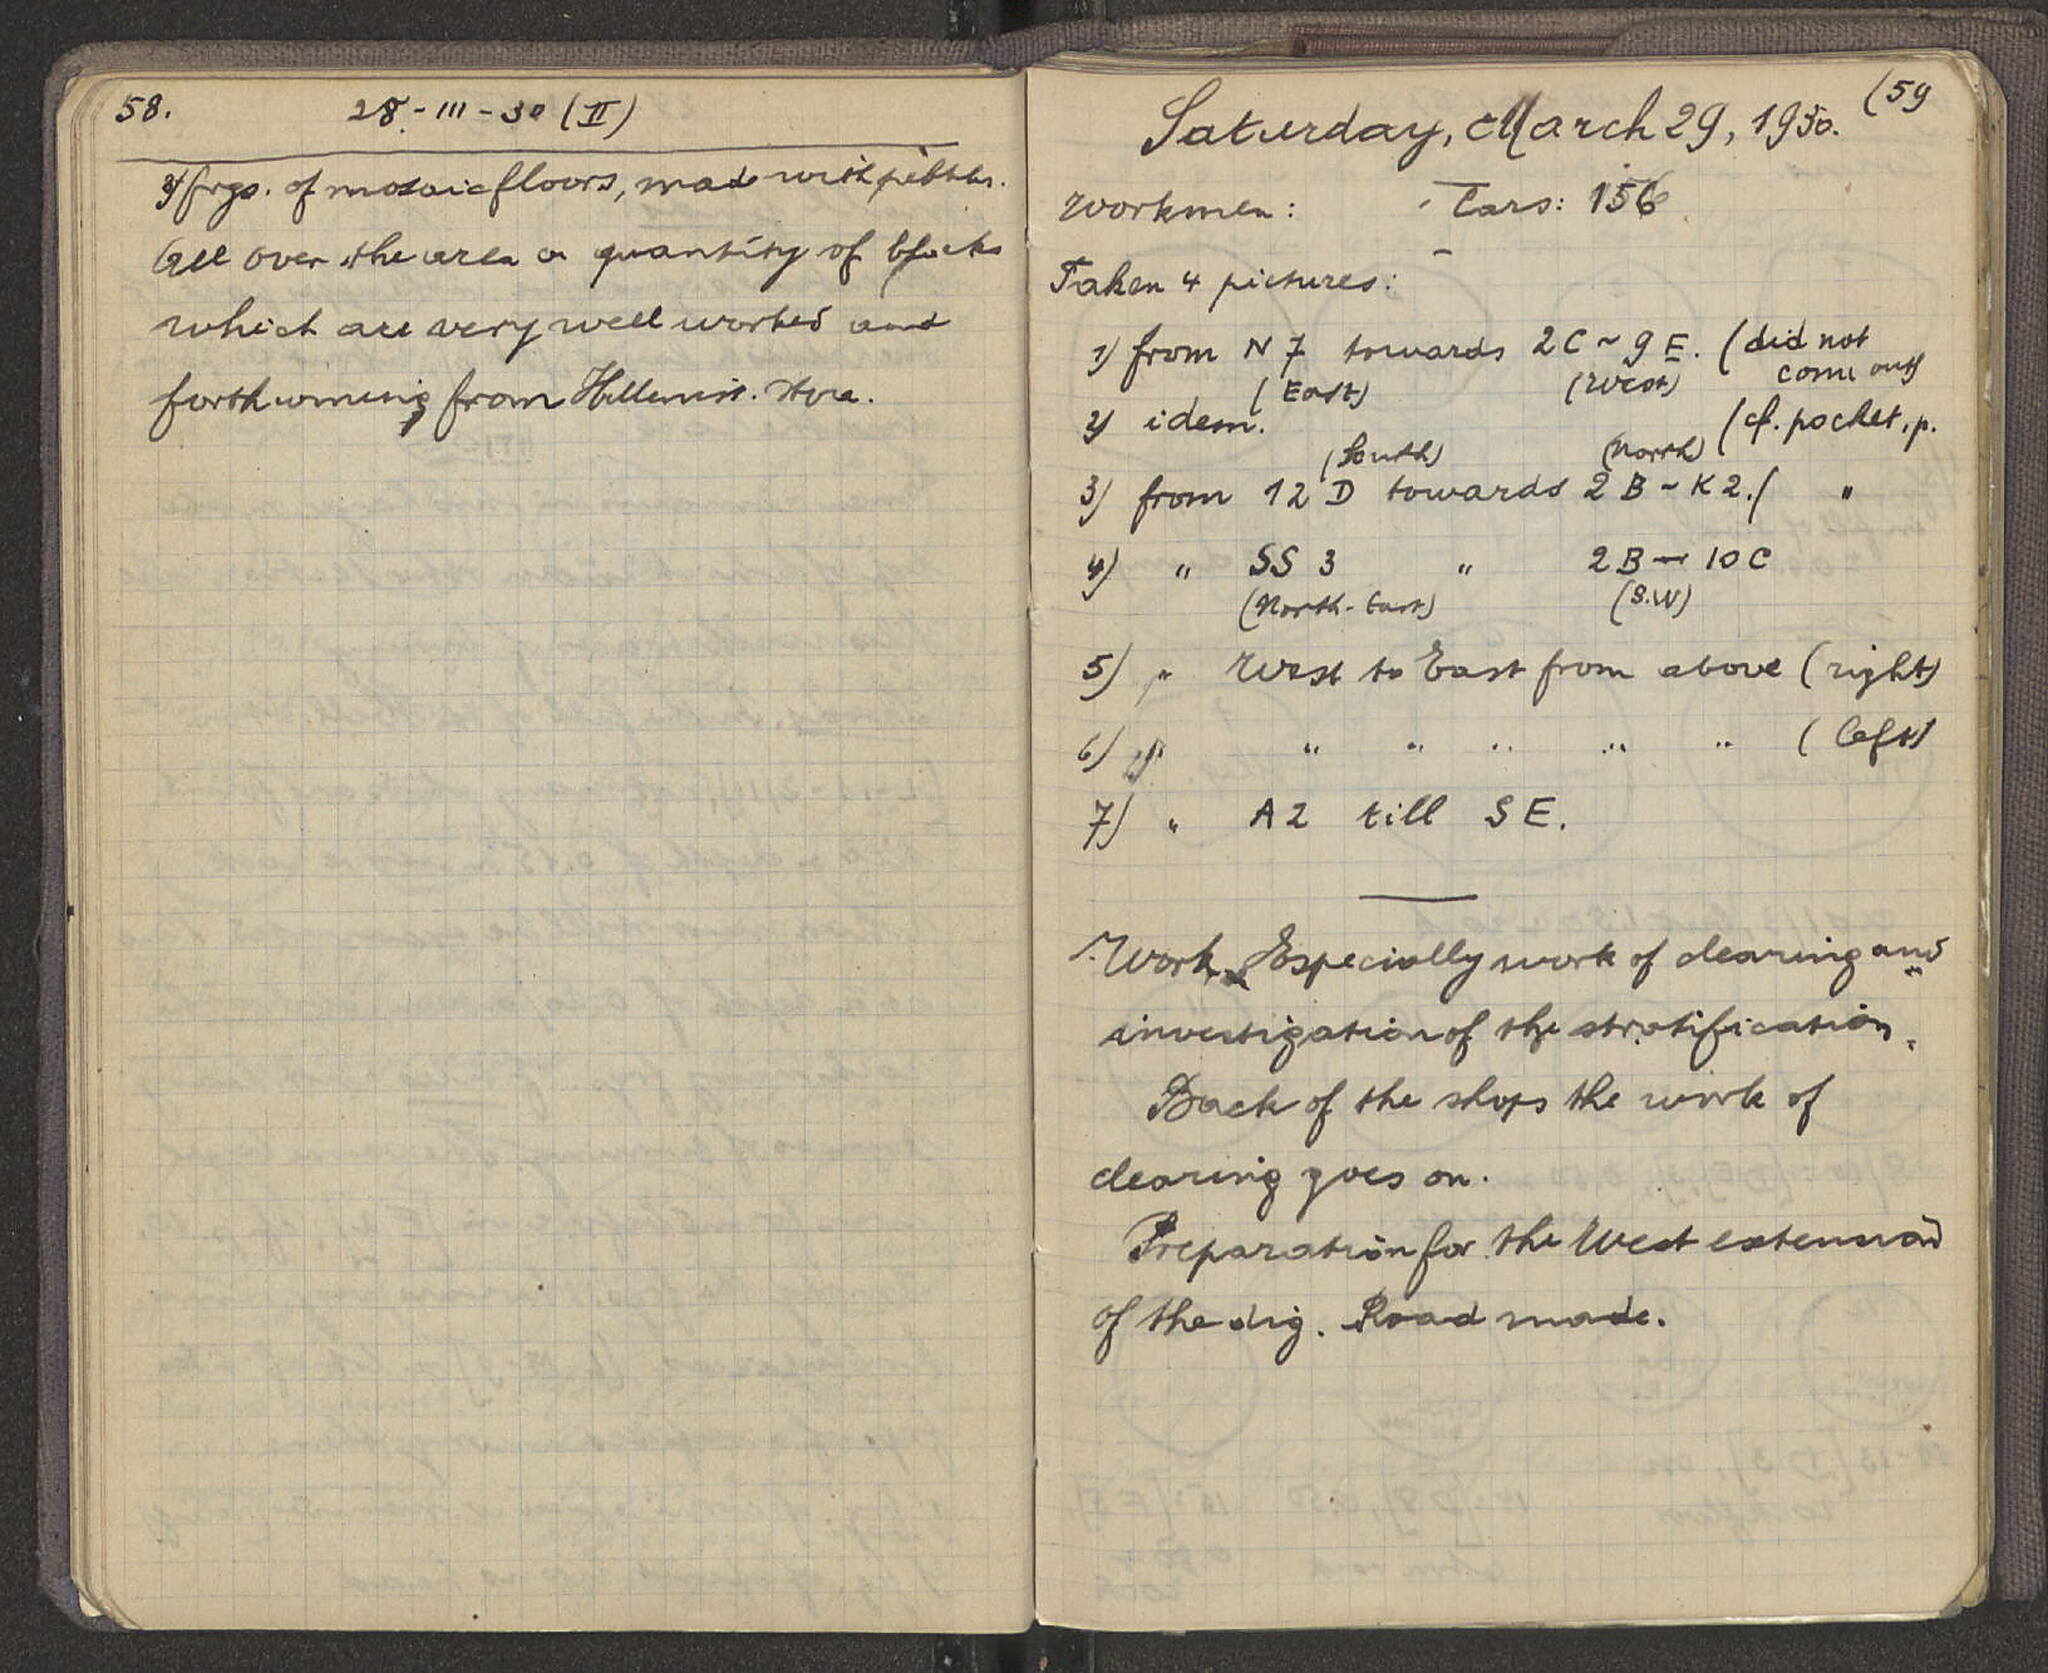 58.
28-III-30 (II)
3) frgs. of mosaic floors, made with pebbles.
All over the area a quantity of blocks
which are very well worked and
forthcoming from Hellenist. Stoa.
(59
Saturday, March 29, 1930.
Workmen: Cars: 156
Taken 4 pictures:
1) from N 7 towards 2C ~ 9 E. (did not
come out)
(East) (West)
2) idem. (cf. pocket, p.
(South) (North)
3) from 12 D towards 2 B - K 2. ( "
4) " SS 3 " 2 B - 10 C
(North-East) (S.W)
5) " West to East from above (right)
6) " " " " " " (left)
7) " A2 till S E.
Work. Especially work of clearing and
investigation of the stratification.
Back of the shops the work of
clearing goes on.
Preparation for the West extension
of the dig. Road made.